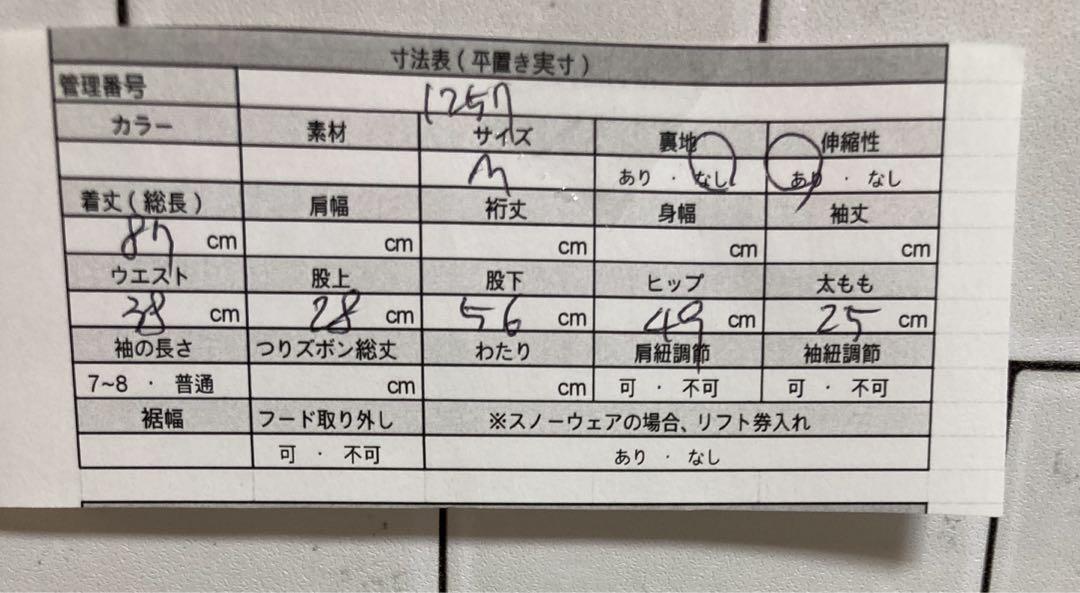 寸法表(平置き実寸)
管理番号 1257
カラー 素材 サイズ 裏地 伸縮性
M あり ・ なし あり ・ なし
着丈(総長) 肩幅 裄丈 身幅 袖丈
87 cm cm cm cm cm
ウエスト 股上 股下 ヒップ 太もも
38 cm 28 cm 56 cm 49 cm 25 cm
袖の長さ つりズボン総丈 わたり 肩紐調節 袖紐調節
7~8 ・ 普通 cm cm 可 ・ 不可 可 ・ 不可
裾幅 フード取り外し ※スノーウェアの場合、リフト券入れ
可 ・ 不可 あり ・ なし